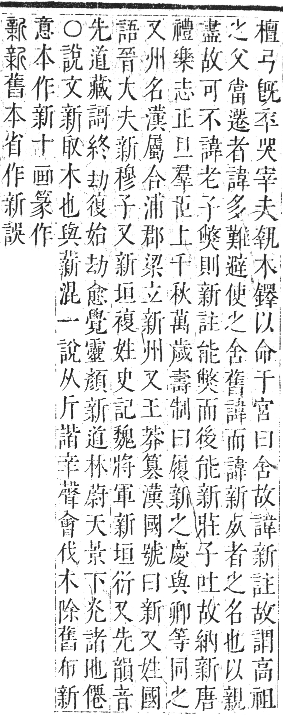 檀弓旣卒哭宰夫執木鐸以命于宮曰舍故諱新註故謂高祖
之父當遷者諱多難避使之舍舊諱而諱新死者之名也以親
盡故可不諱老子獘則新註能獘而後能新莊子吐故納新唐
禮樂志正旦羣臣上千秋萬歲壽制曰履新之慶與卿等同之
又州名漢屬合浦郡梁立新州又王莽篡漢國號曰新又姓國
語晉大夫新穆子又新垣複姓史記魏將軍新垣衍又先韻音
先道藏謌終劫復始劫愈覺靈顏新道林蔚天景下光諸地僊
〇說文新取木也與薪混一說从斤諧辛聲會伐木除舊布新
意本作新十一畫篆作
新舊本省作新誤